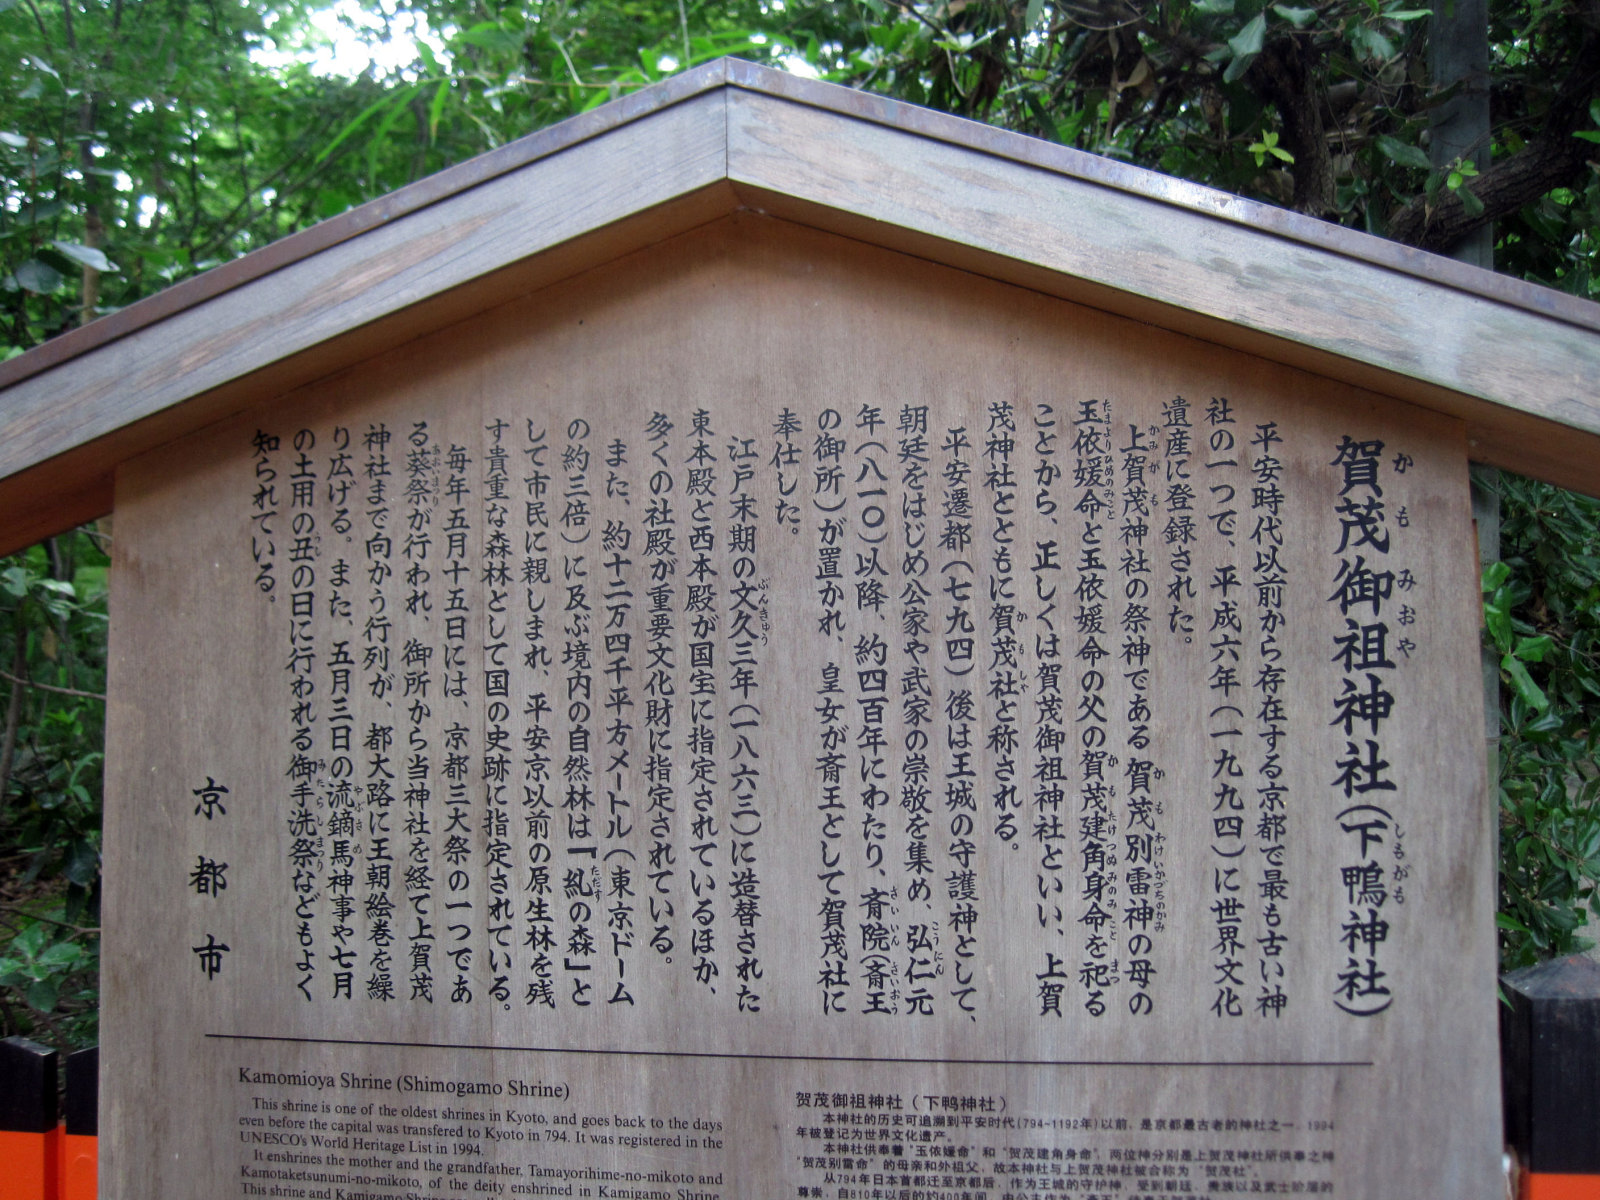 賀茂御祖神社(下鴨神社)
平安時代以前から存在する京都で最も古い神
社の一つで、平成六年(一九九四)に世界文化
遺産に登録された。
上賀茂神社の祭神である賀茂別雷神の母の
玉依媛命と玉依媛命の父の賀茂建角身命を祀る
ことから、正しくは賀茂御祖神社といい、上賀
茂神社とともに賀茂社と称される。
平安遷都(七九四)後は王城の守護神として、
朝廷をはじめ公家や武家の崇敬を集め、弘仁元
年(八一〇)以降、約四百年にわたり、斎院(斎王
の御所)が置かれ、皇女が斎王として賀茂社に
奉仕した。
江戸末期の文久三年(一八六三)に造替された
東本殿と西本殿が国宝に指定されているほか、
多くの社殿が重要文化財に指定されている。
また、約十二万四千平方メートル(東京ドーム
の約三倍)に及ぶ境内の自然林は「糺の森」と
して市民に親しまれ、平安京以前の原生林を残
す貴重な森林として国の史跡に指定されている。
毎年五月十五日には、京都三大祭の一つであ
る葵祭が行われ、御所から当神社を経て上賀茂
神社まで向かう行列が、都大路に王朝絵巻を繰
り広げる。また、五月三日の流鏑馬神事や七月
の土用の丑の日に行われる御手洗祭などもよく
知られている。
京都市
Kamomioya Shrine (Shimogamo Shrine)
This shrine is one of the oldest shrines in Kyoto, and goes back to the days
even before the capital was transfered to Kyoto in 794. It was registered in the
UNESCO's World Heritage List in 1994.
It enshrines the mother and the grandfather, Tamayorihime-no-mikoto and
Kamotaketsunumi-no-mikoto, of the deity enshrined in Kamigamo Shrine.
This shrine and Kamigamo Shrine
贺茂御祖神社(下鸭神社)
本神社的历史可追溯到平安时代(794~1192年)以前,是京都最古老的神社之一,1994
年被登记为世界文化遗产。
本神社供奉着"玉侬媛命"和"贺茂建角身命",两位神分别是上贺茂神社所供奉之神
"贺茂别雷命"的母亲和外祖父,故本神社与上贺茂神社被合称为"贺茂社"。
从794年日本首都迁至京都后,作为王城的守护神,受到朝廷、贵族以及武士阶层的
尊崇,自810年以后的约400年间,